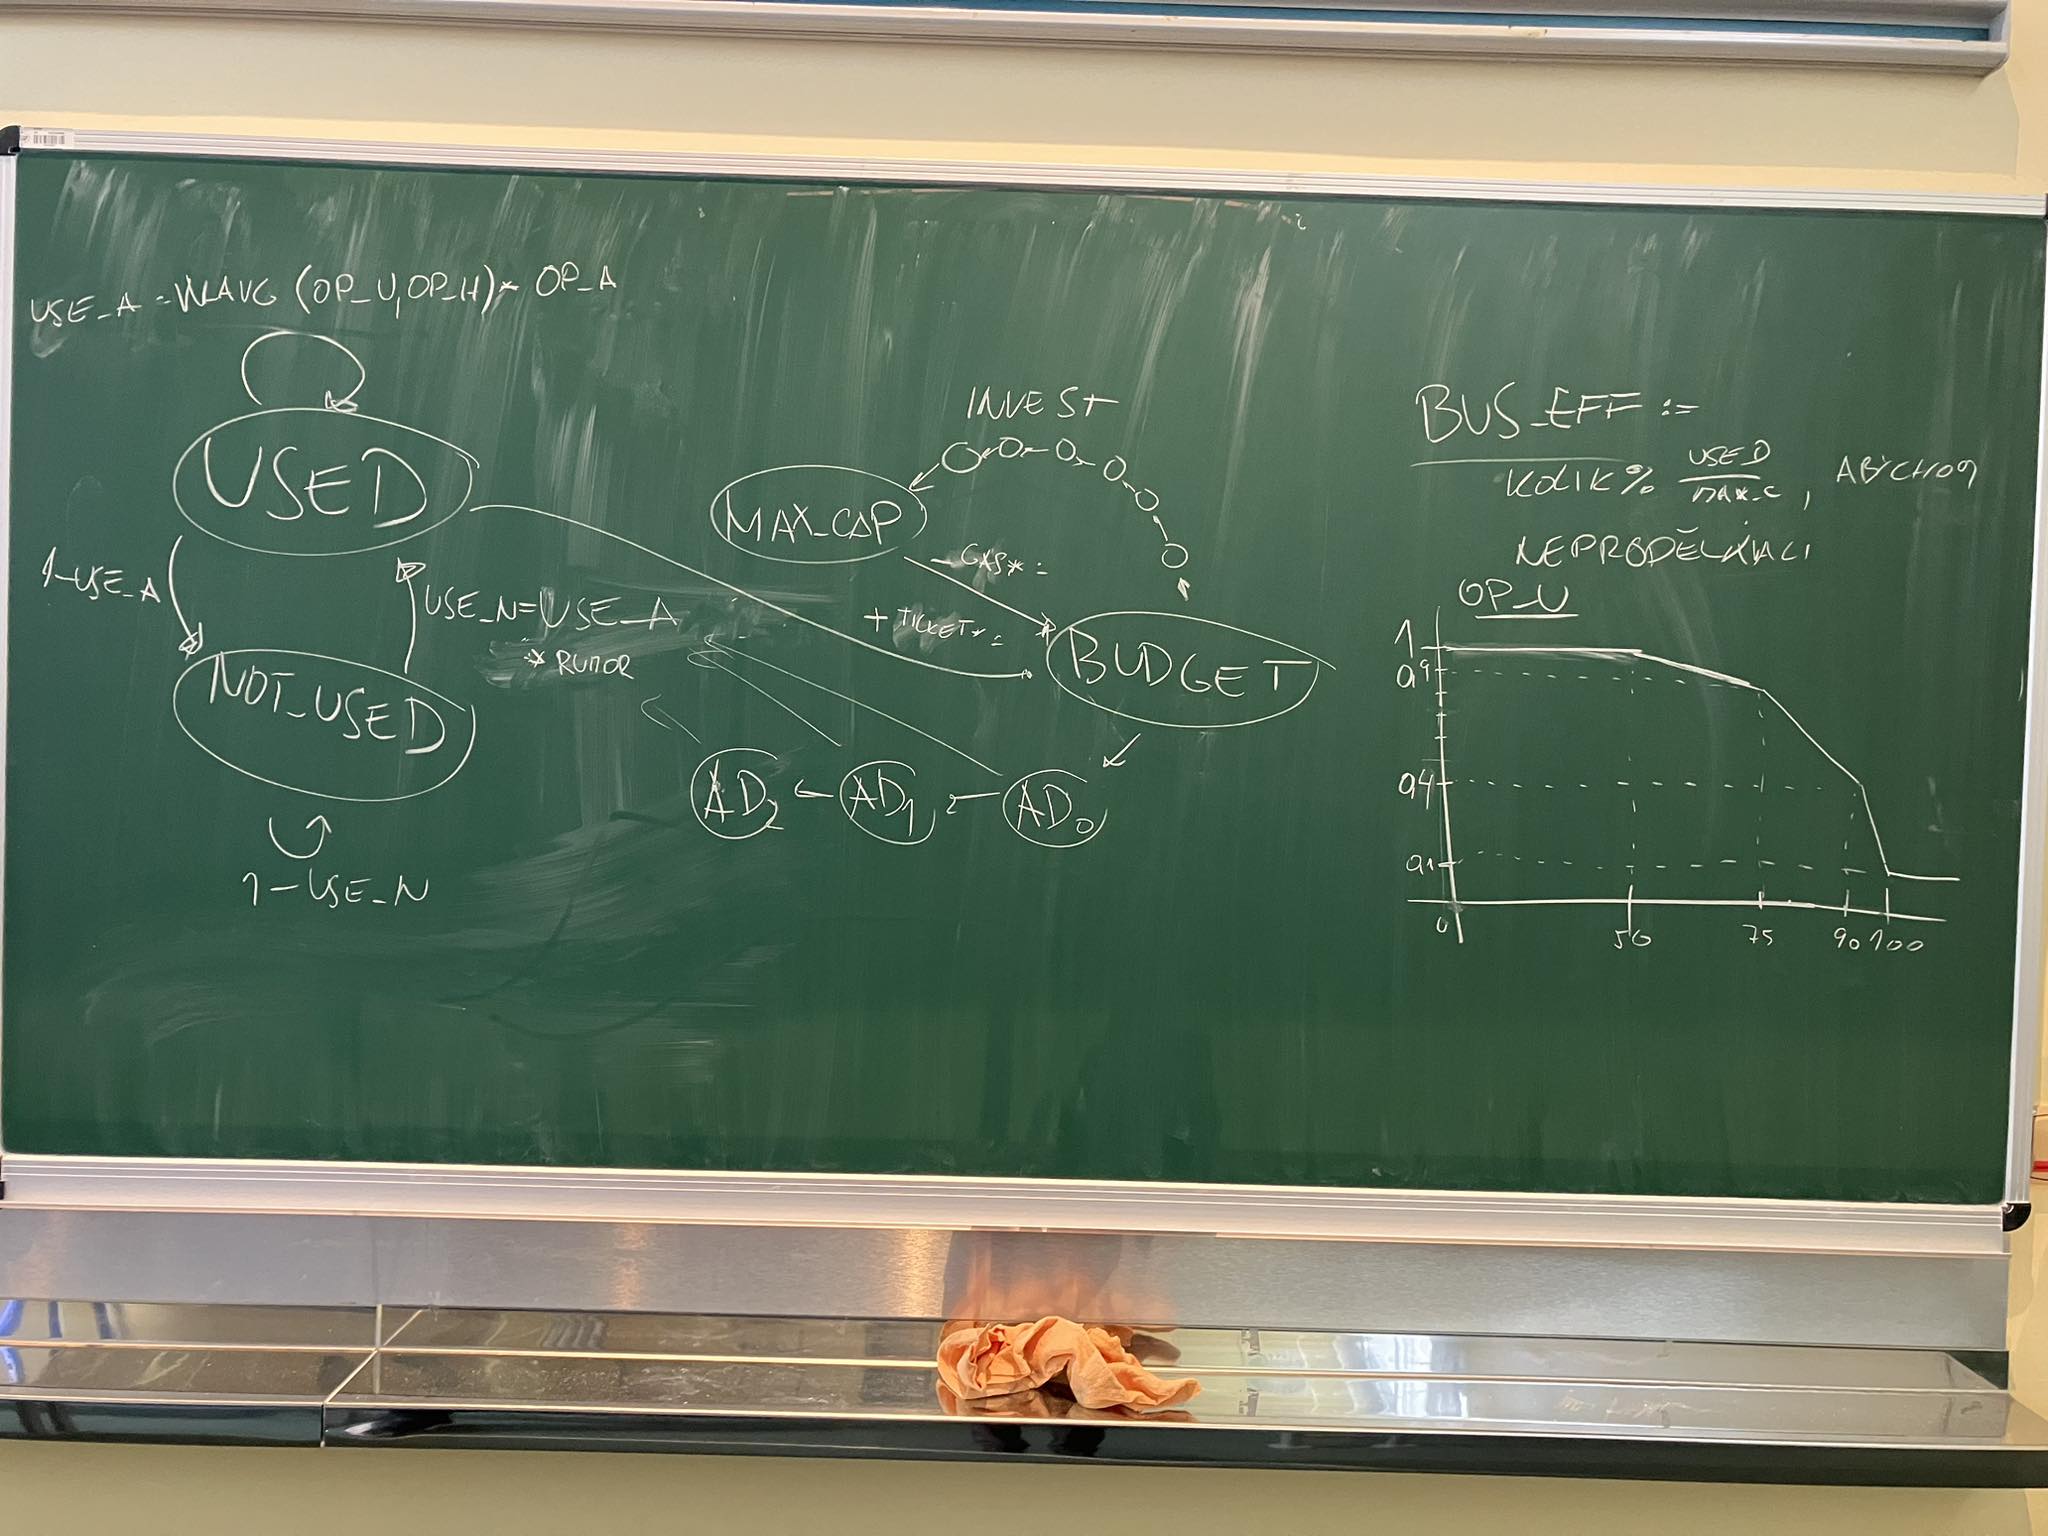 USE_A = WLAVG (OP_U, OP_H) * OP_A
USED
1-USE_A
USE_N=USE_A
* RUMOR
NOT_USED
1-USE_N
INVEST
MAX_CAP
- GAS* =
+ TICKET* =
BUDGET
AD2
AD1
AD0
BUS_EFF :=
KOLIK% USED
MAX_C, ABYCHOM
NEPRODĚLÁVALI
OP_U
1
0,9
0,4
0,1
0 50 75 90 100